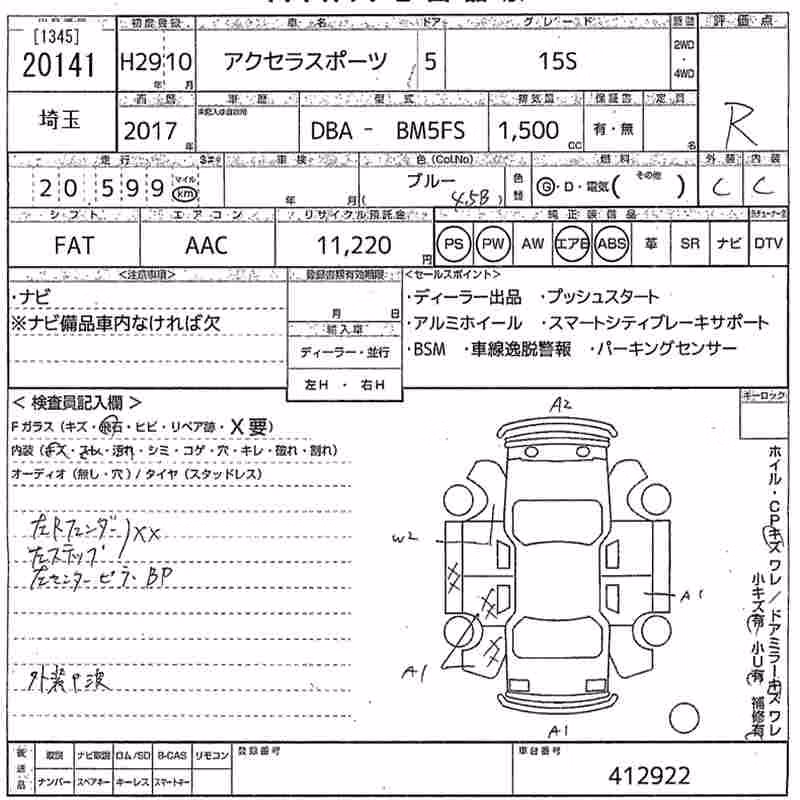 [1345]
20141
初度登録 車名 ドア グレード 駆動 評価点
H29 10 アクセラスポーツ 5 15S 2WD・4WD
年 月
埼玉
西暦 車歴 型式 排気量 保証書 定員
2017年 DBA - BM5FS 1,500 CC 有・無 名 R
走行 車検 色(Col.No) 燃料 外装 内装
20599 マイル km 年 月 ブルー (45B) 色替 G・D・電気( その他 ) C C
シフト エアコン リサイクル預託金 純正装備品
FAT AAC 11,220円 PS PW AW エアB ABS 革 SR ナビ DTV
<注意事項> 登録書類有効期限 <セールスポイント>
・ナビ 月 日 ・ディーラー出品 ・プッシュスタート
※ナビ備品車内なければ欠 輸入車 ・アルミホイール ・スマートシティブレーキサポート
ディーラー・並行 ・BSM ・車線逸脱警報 ・パーキングセンサー
左H ・ 右H
<検査員記入欄> キーロック
Fガラス(キズ・飛石・ヒビ・リペア跡・X要)
内装(キズ・スレ・汚れ・シミ・コゲ・穴・キレ・破れ・割れ)
オーディオ(無し・穴)/タイヤ(スタッドレス)
左Rフェンダー
左ステップ XX
左センターピラ BP
外装中波
A2
W2
A1
A1
A1
ホイル・CPキズワレ/ドアミラーキズワレ
小キズ有 小U有 補修有
後送品 取説 ナビ取説 ロム/SD B-CAS リモコン 登録番号 車台番号
ナンバー スペアキー キーレス スマートキー 412922